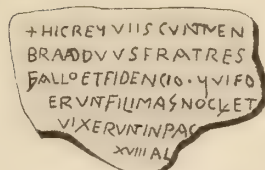 + HIC REQVIISCVNT MEN
BRA AD DVVS FRATRES
GALLO ET FIDENCIO · QVI FO
ERVNT FILI MAGNO CL ET
VIXERVNT IN PAC
XVIII AL